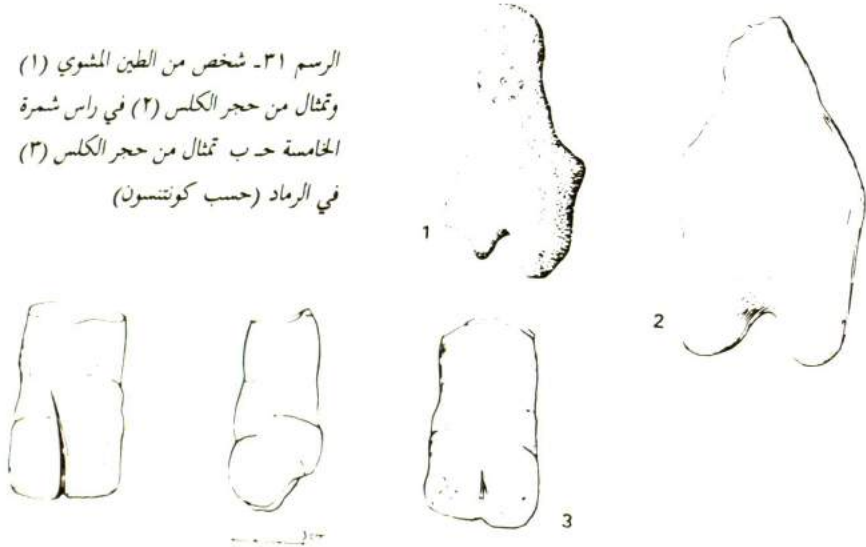 الرسم ٣١ـ شخص من الطين المشوي (١)
وتمثال من حجر الكلس (٢) في راس شمرة
الخامسة حـ ب تمثال من حجر الكلس (٣)
في الرماد (حسب كونتنسون)
1
2
3